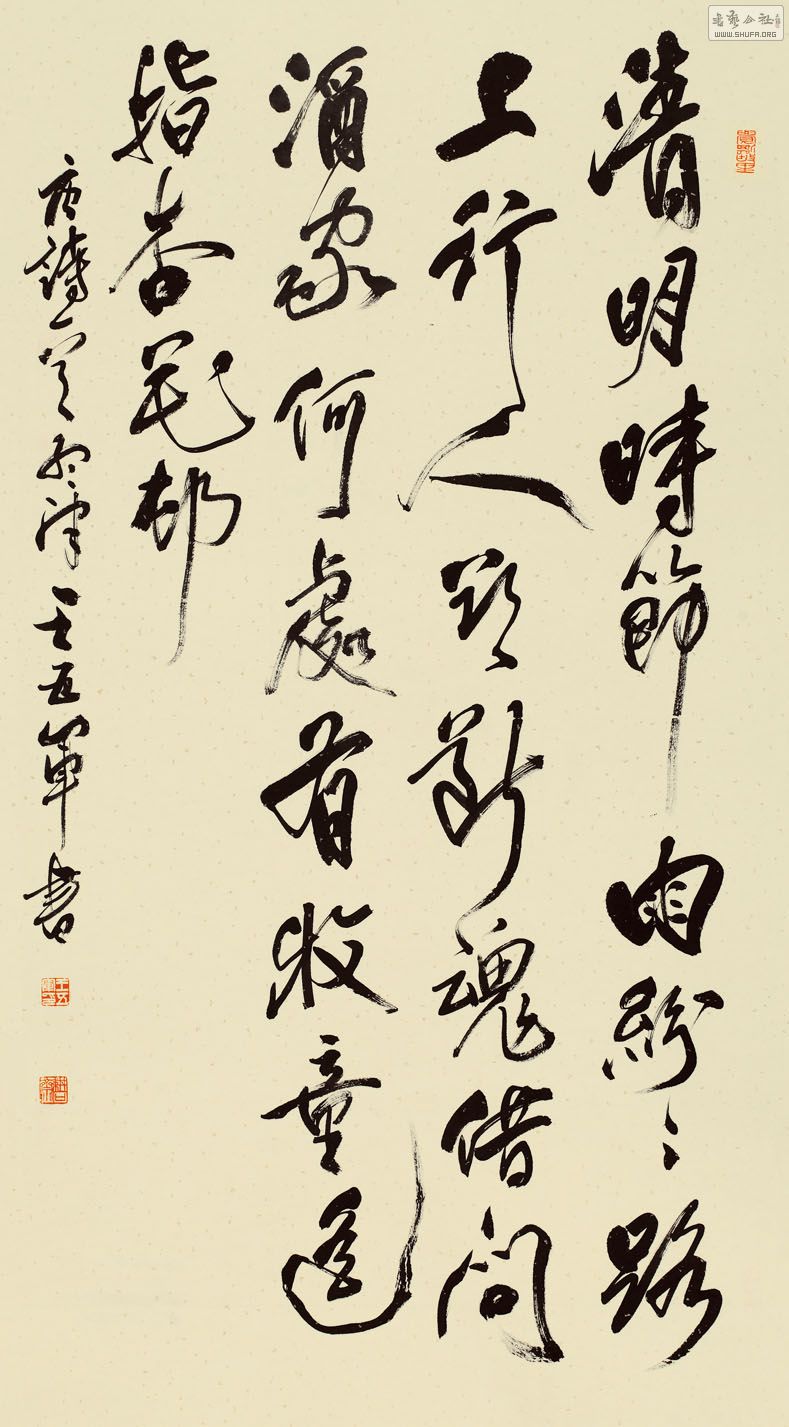 清明時節雨紛〻路
上行人欲斷魂借問
酒家何處有牧童遙
指杏花邨
唐詩一首津王五軍書
書藝公社
WWW.SHUFA.ORG